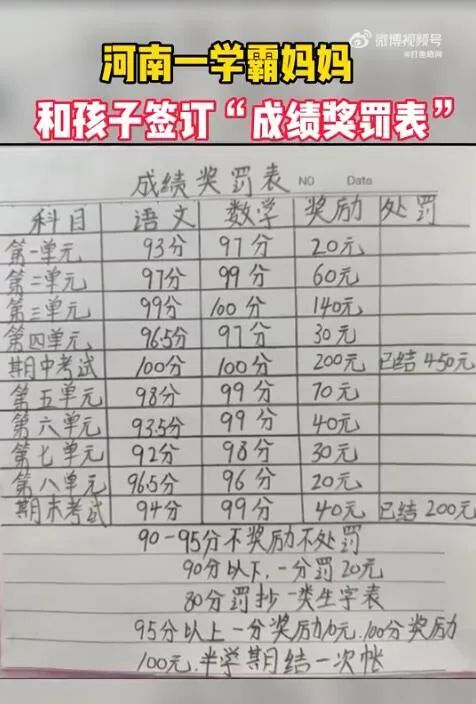 微博视频号
@打鱼晒网
河南一学霸妈妈
和孩子签订“成绩奖罚表”
成绩奖罚表 NO Date
科目 语文 数学 奖励 处罚
第一单元 93分 97分 20元
第二单元 97分 99分 60元
第三单元 99分 100分 140元
第四单元 96.5分 97分 30元
期中考试 100分 100分 200元 已结450元
第五单元 98分 99分 70元
第六单元 93.5分 99分 40元
第七单元 92分 98分 30元
第八单元 96.5分 96分 20元
期末考试 94分 99分 40元 已结200元
90-95分不奖励不处罚
90分以下,一分罚20元
80分罚抄一类生字表
95分以上一分奖励10元.100分奖励
100元.半学期结一次帐